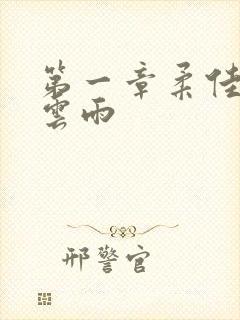 第一章柔佳
雲雨
邢警官